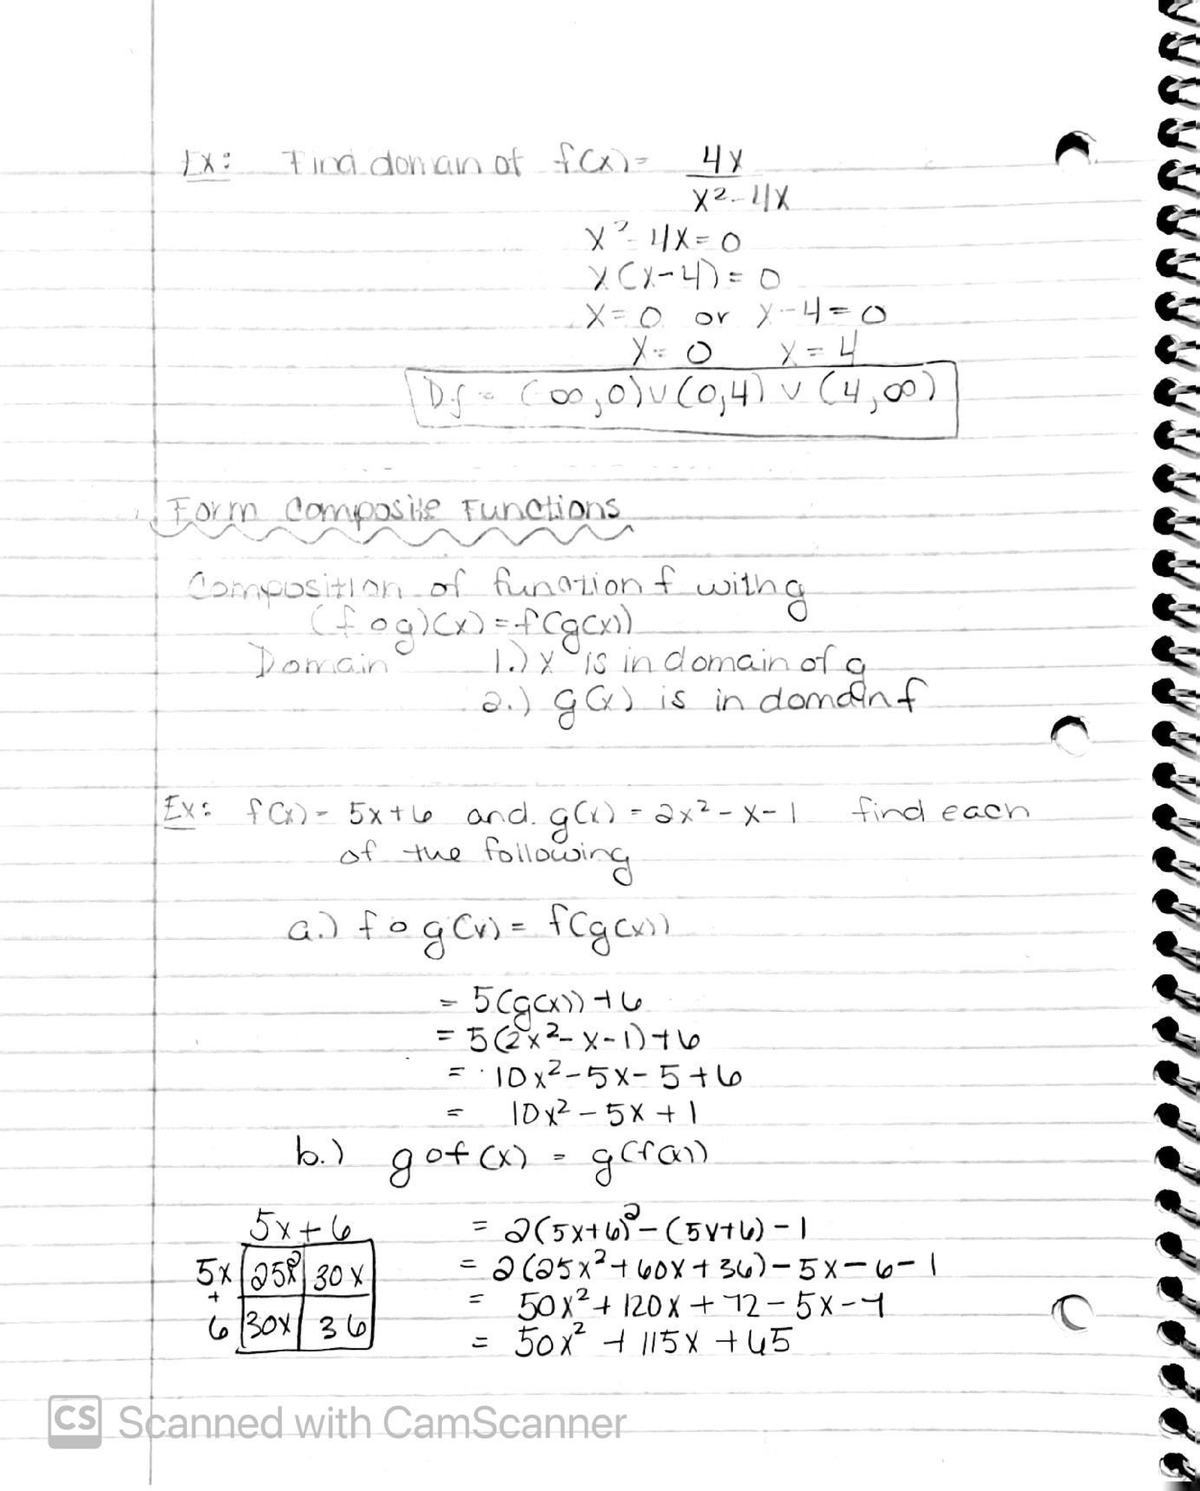 Ex: Find domain of f(x) = 4x
x² - 4x
x² - 4x = 0
x(x-4) = 0
x = 0 or x-4 = 0
x = 0 x = 4
Df = (∞,0)∪(0,4)∪(4,∞)
Form Composite Functions
Composition of function f with g
(f o g)(x) = f(g(x))
Domain 1.) x is in domain of g
2.) g(x) is in domain f
Ex: f(x) = 5x+6 and g(x) = 2x² - x - 1 find each
of the following
a.) f o g(x) = f(g(x))
= 5(g(x)) + 6
= 5(2x² - x - 1) + 6
= 10x² - 5x - 5 + 6
= 10x² - 5x + 1
b.) g o f(x) = g(f(x))
5x + 6
5x 25x² 30x
+
6 30x 36
= 2(5x+6)² - (5x+6) - 1
= 2(25x² + 60x + 36) - 5x - 6 - 1
= 50x² + 120x + 72 - 5x - 7
= 50x² + 115x + 65
CS Scanned with CamScanner